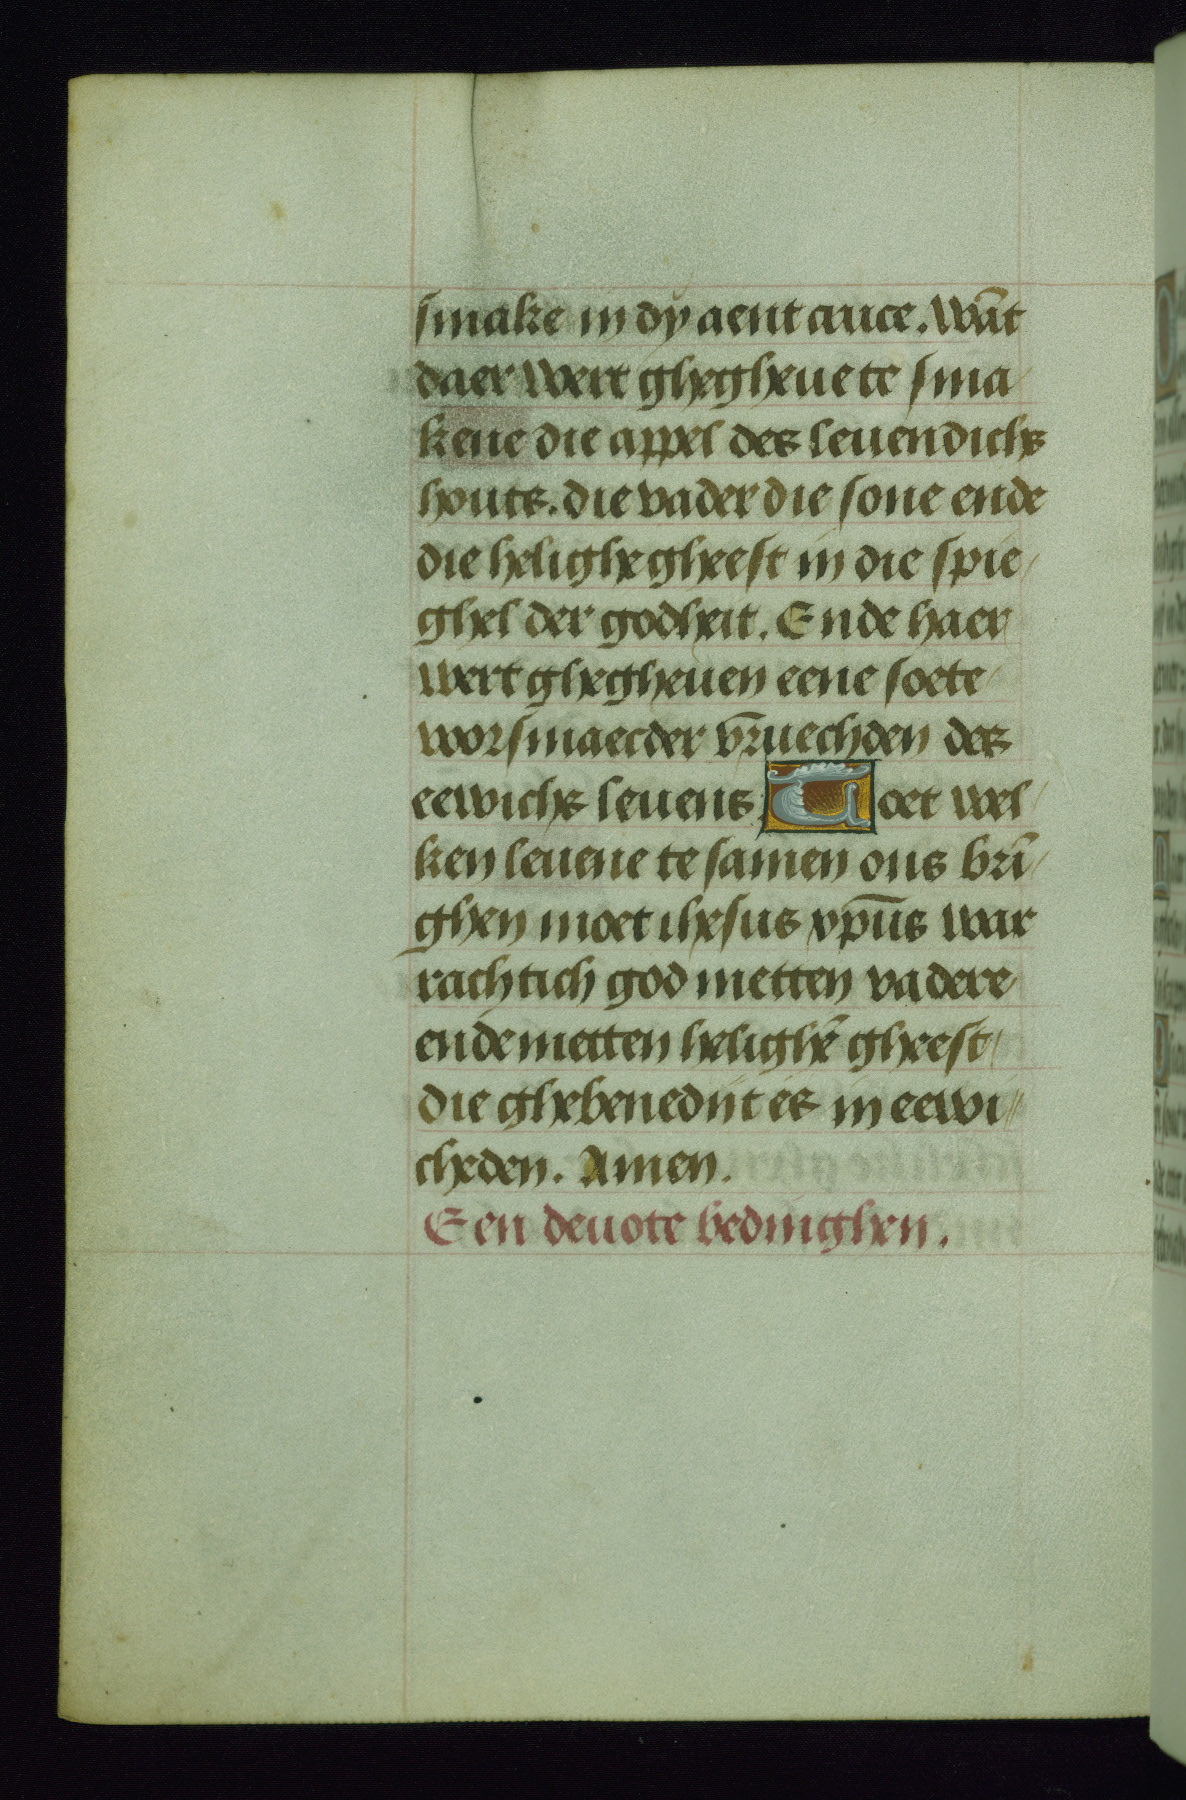 smake in dy aent cruce. Wāt
daer wert ghegheue te sma
kene die appel des leuendichs
houts. die vader die sone ende
die helighe gheest in die spie
ghel der godheit. Ende haer
wert ghegheuen eene soete
vvorsmaecder vr̄uechden des
eewichs leuens Toet wel
ken leuene te samen ons brī
ghen moet ihesus xp̄us war
rachtich god metten vadere
ende metten helighē gheest
die ghebenedijt es in eewi
cheden. Amen.
Een deuote bedinghen.